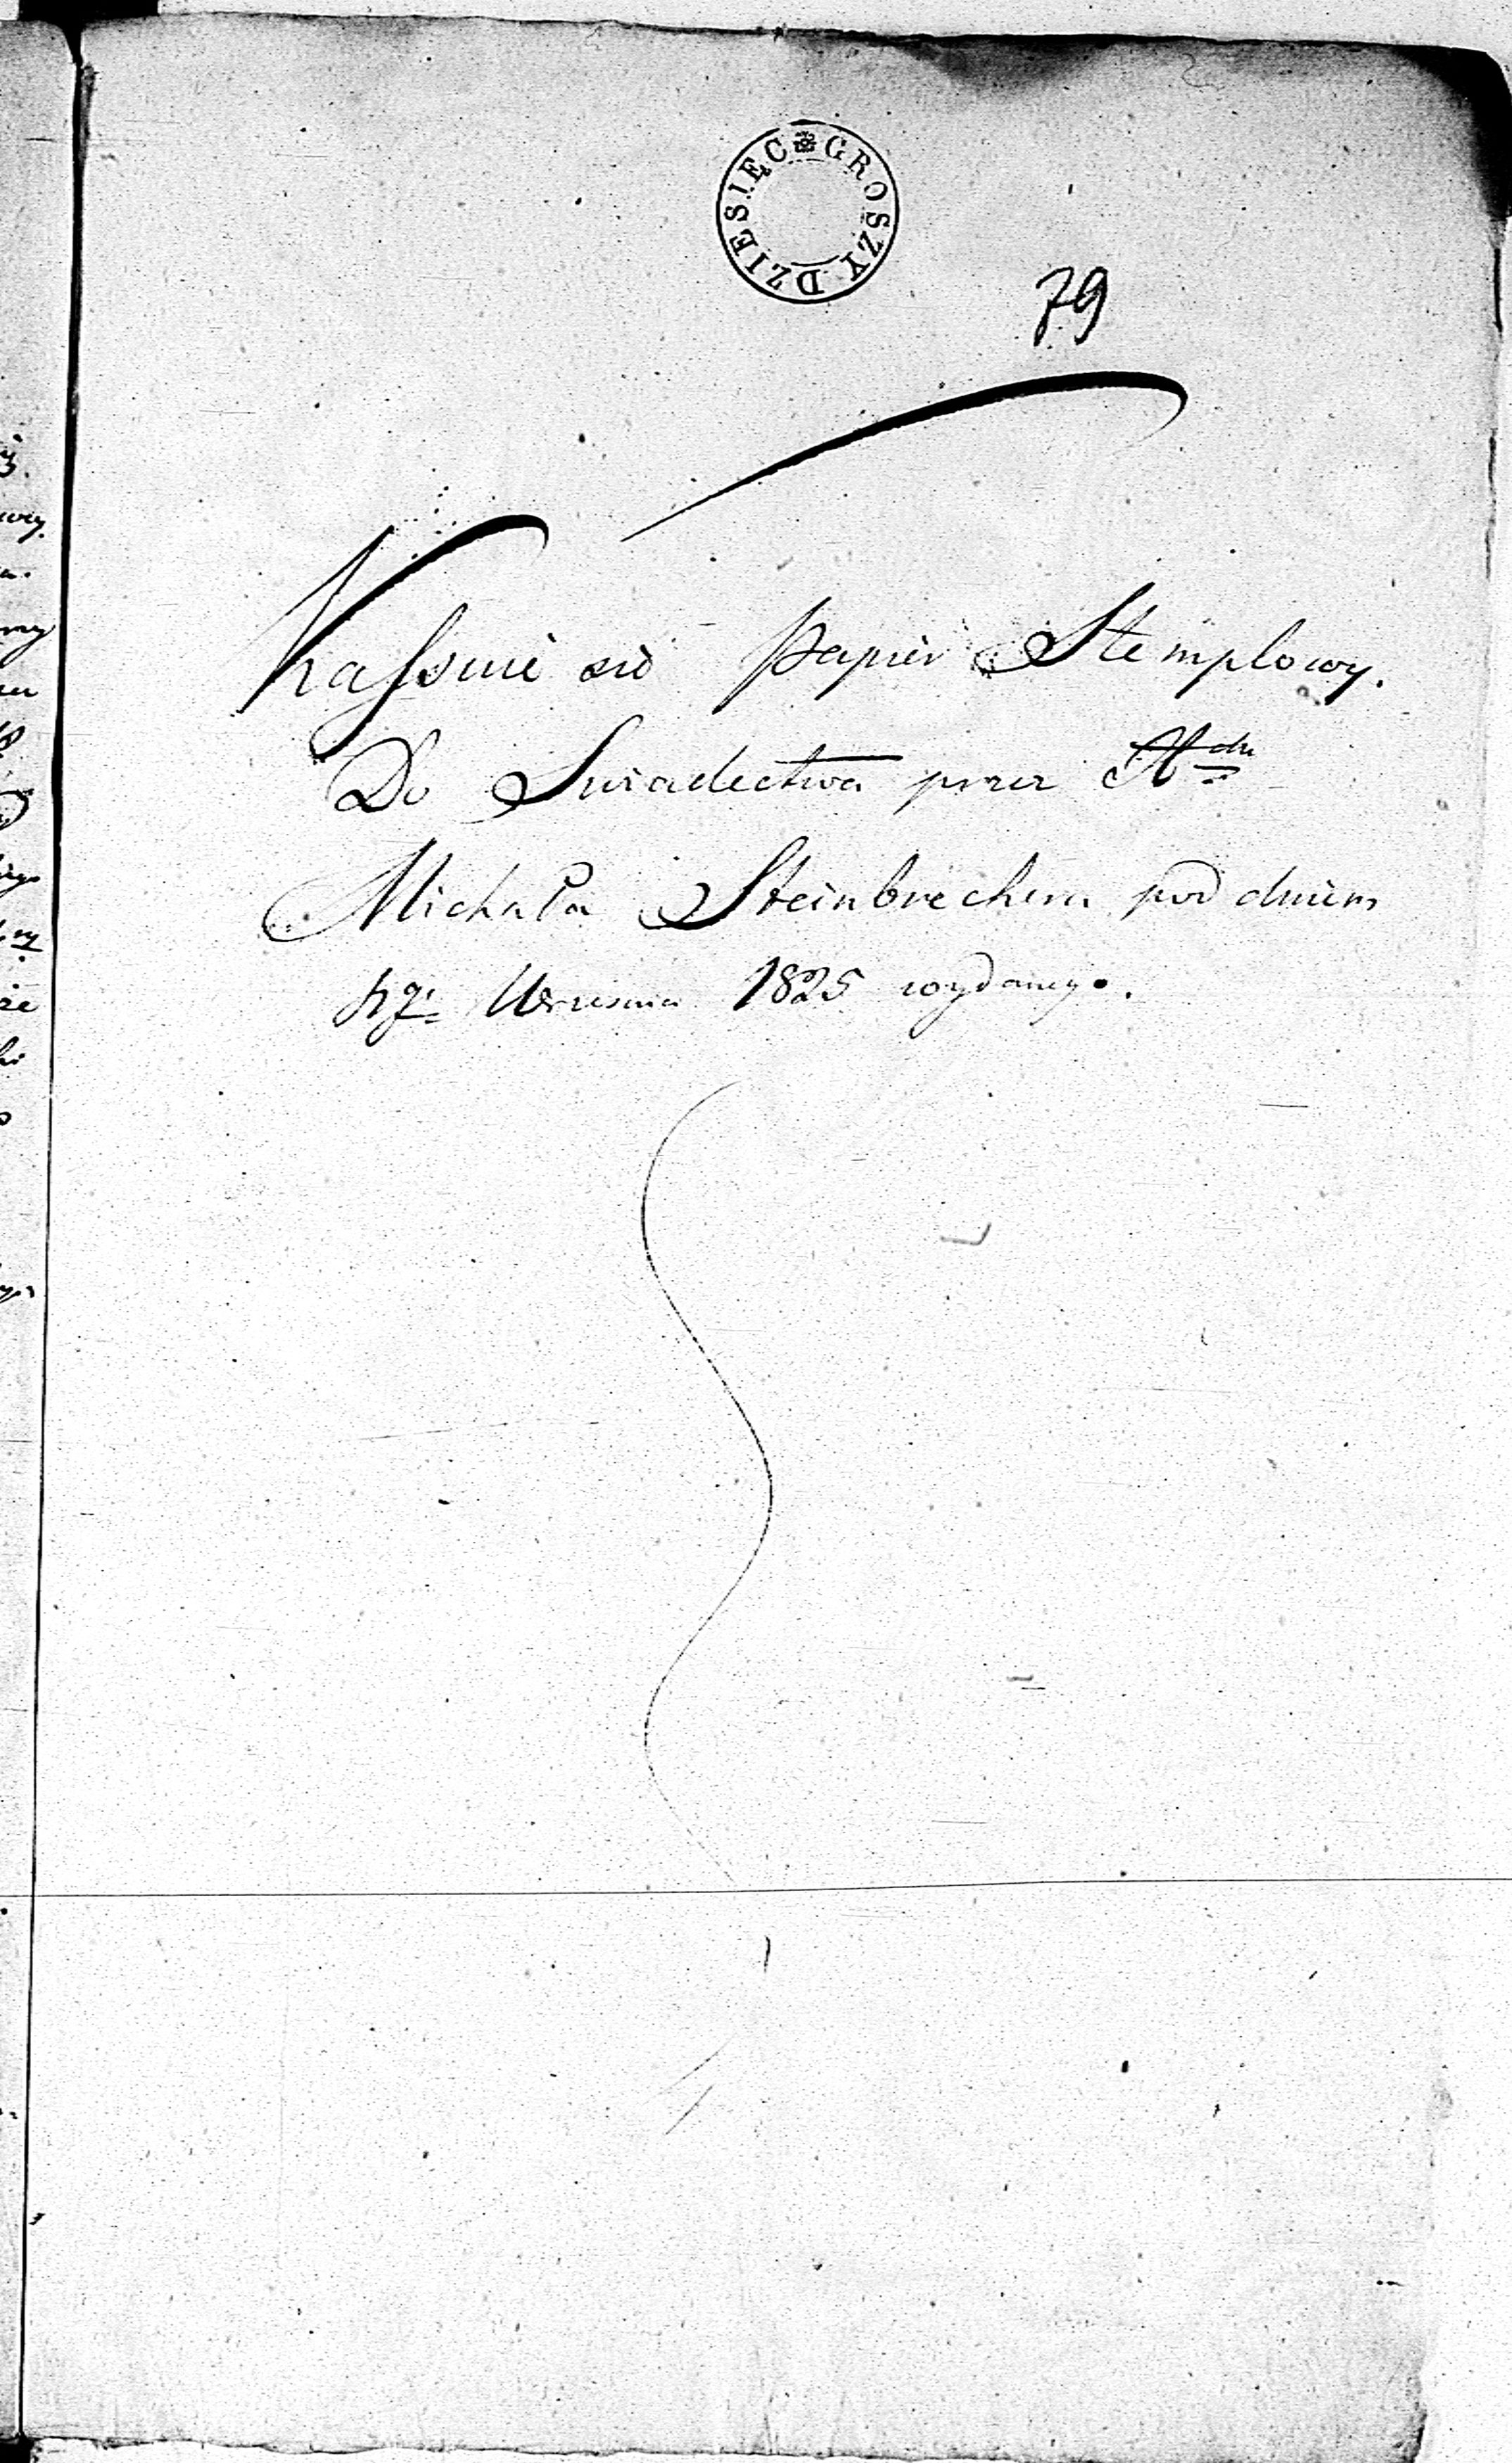 GROSZY DZIESIĘC
79
Kassuie sie Papier Stemplowy.
Do Swiadectwa przez
Michała Steinbrechera pod dniem
Września 1825 wydanego.